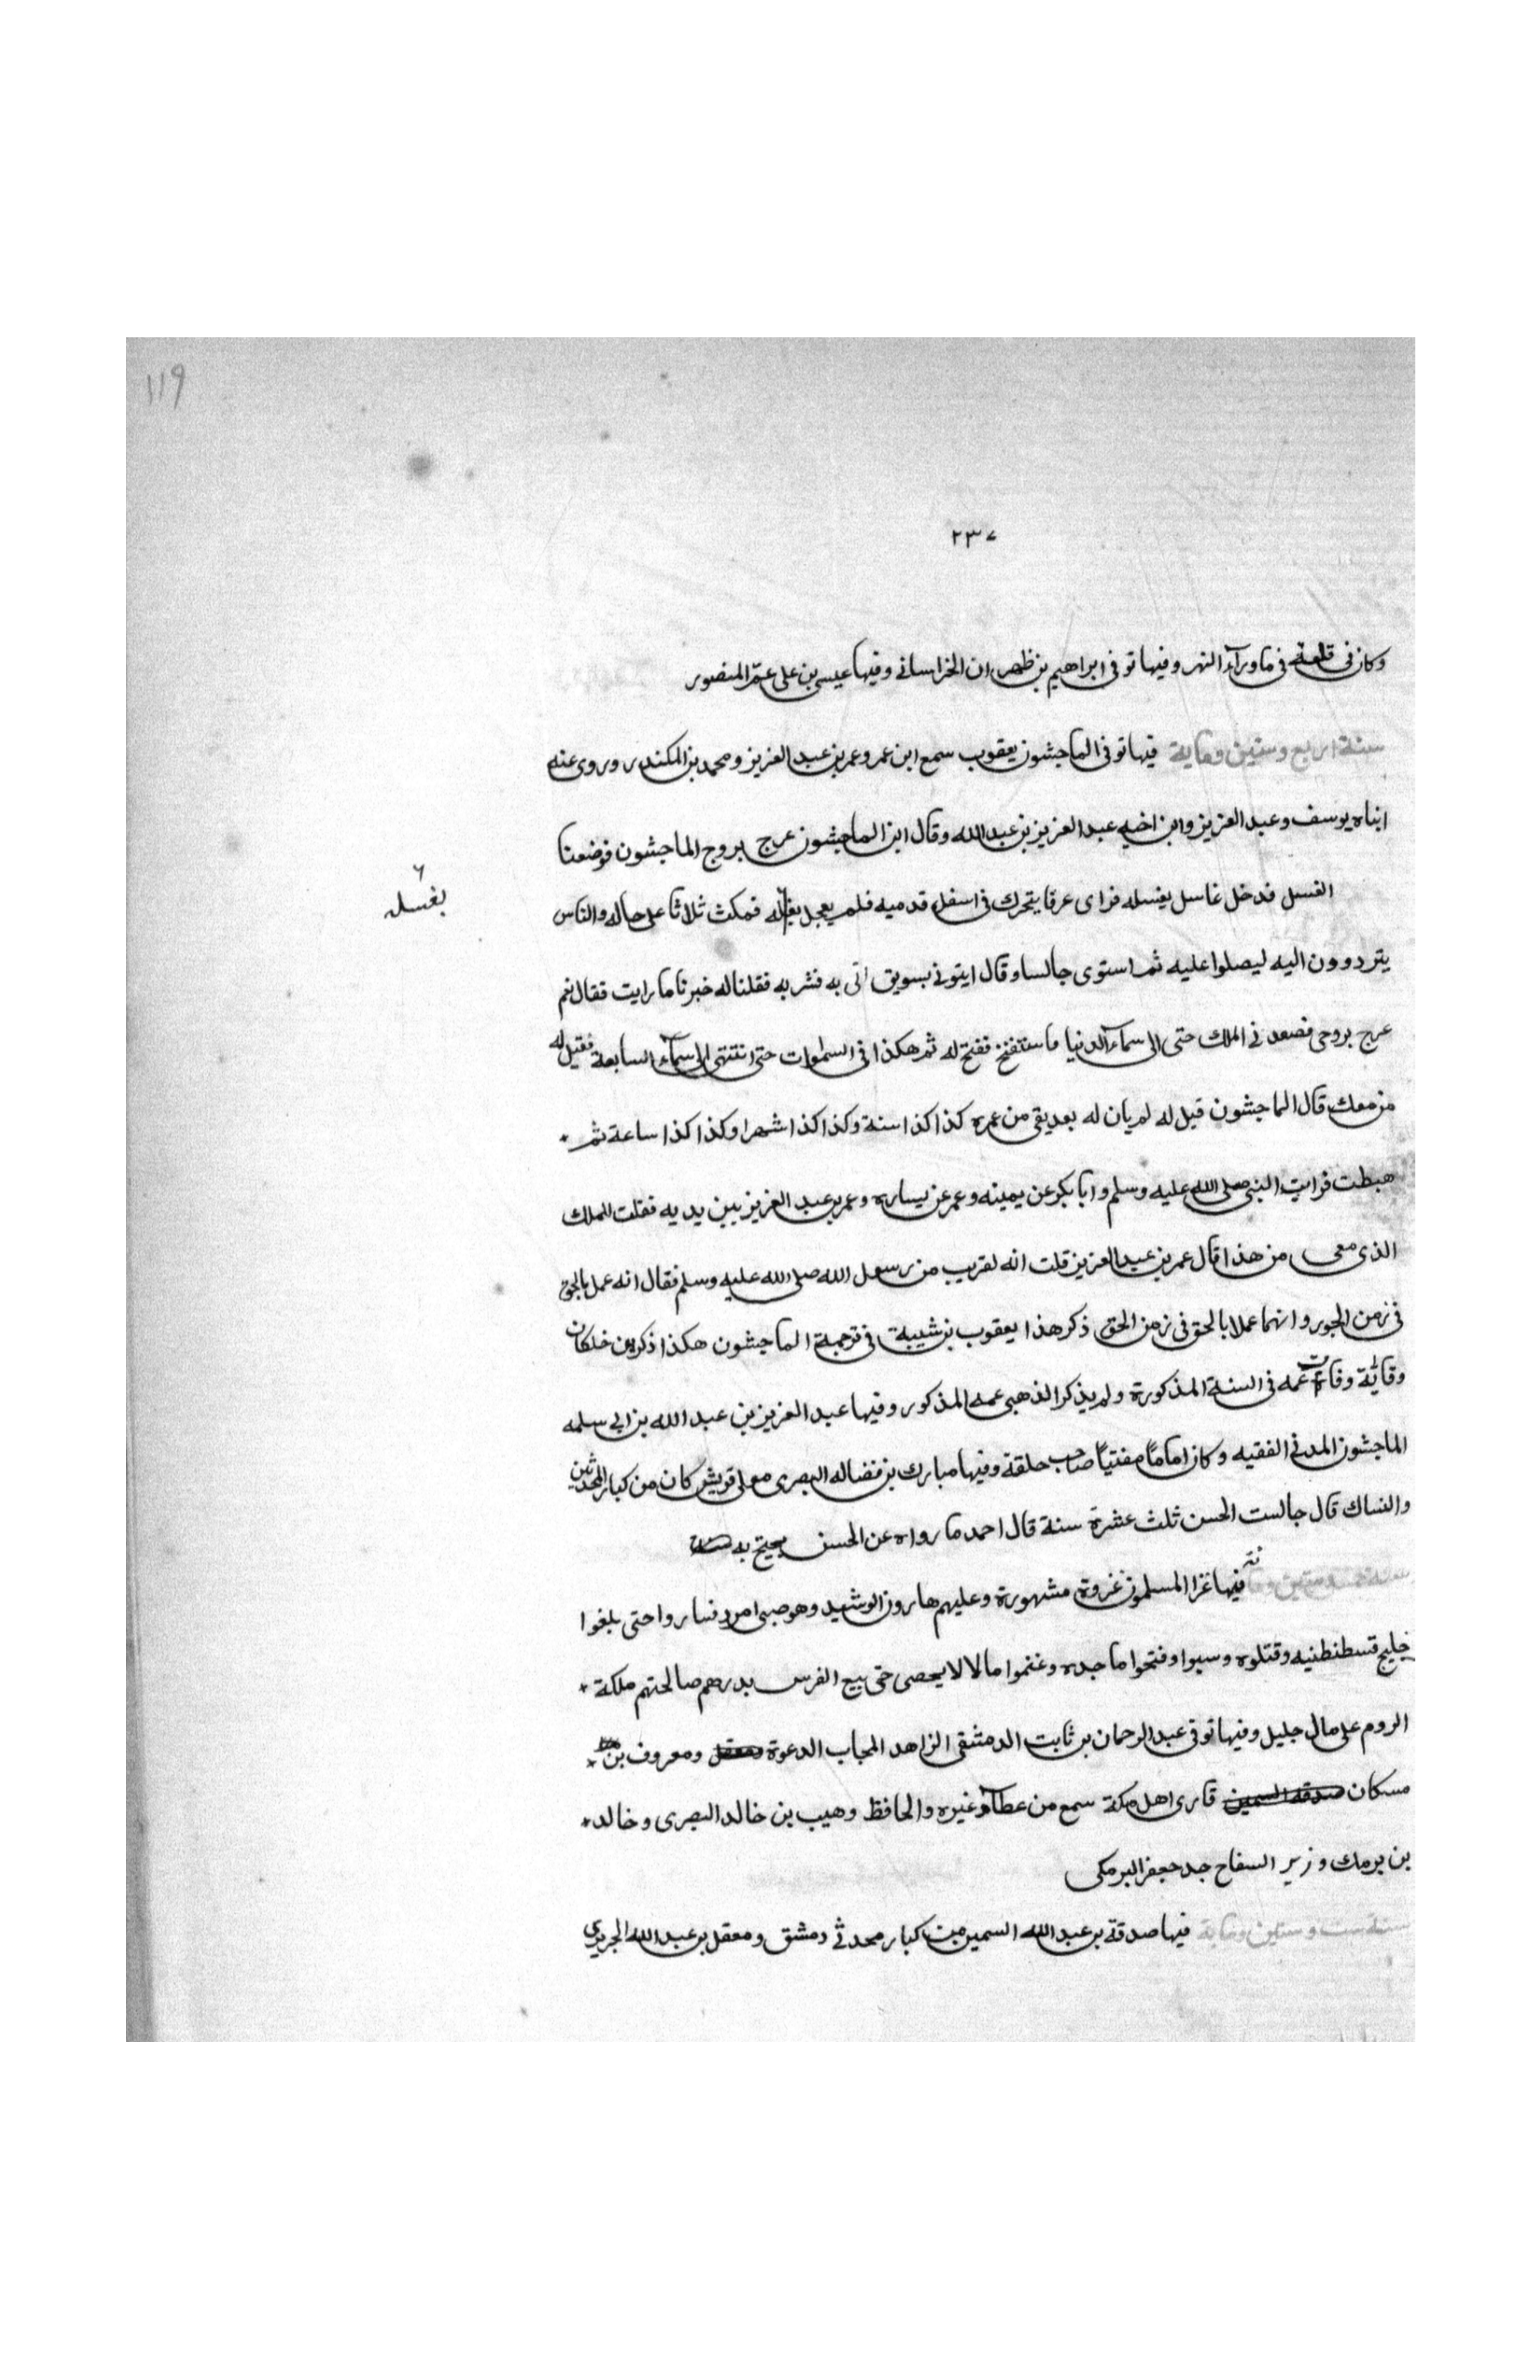 119
٢٣٧
وكان فى قلعة فى ماورآء النهر وفيها توفى ابراهيم بن طهمان الخراسانى وفيها عيسى بن على عم المنصور
سنة اربع وستين وماية فيها توفى الماجشون يعقوب سمع ابن عمر وعمر بن عبد العزيز ومحمد بن المكندر وروى عنه
ابناه يوسف وعبد العزيز وابن اخيه عبد العزيز بن عبد الله وقال ابن الماجشون عرج بروح الماجشون فوضعنا
الغسل فدخل غاسل يغسله فراى عرقا يتحرك فى اسفل قدميه فلم يعجل بغسله فمكث ثلاثا على حاله والناس
بغسله
يترددون اليه ليصلوا عليه ثم استوى جالسا وقال ايتونى بسويق اتى به فشربه فقلنا له خبرنا ما رايت فقال نعم
عرج بروحى فصعد فى الملك حتى الى سمآء الدنيا فاستفتح ففتح له ثم هكذا فى السموات حتى انتهى الى سمآء السابعة فقيل له
من معك قال الماجشون قيل له لم يان له بعد بقى من عمره كذا كذا سنة وكذا كذا شهرا وكذا كذا ساعة ثم
هبطت فرايت النبى صلى الله عليه وسلم وابا بكر عن يمينه وعمر عن يساره وعمر بن عبد العزيز بين يديه فقلت للملك
الذى معى من هذا قال عمر بن عبد العزيز قلت انه لقريب من رسول الله صلى الله عليه وسلم فقال انه عمل بالحق
فى زمن الجور وانهما عملا بالحق فى زمن الحق ذكر هذا يعقوب بن شيبة فى ترجمة الماجشون هكذا ذكر ابن خلكان
وفاة عمه فى السنة المذكورة ولم يذكر الذهبى عمه المذكور وفيها عبد العزيز بن عبد الله بن ابى سلمه
الماجشون المدنى الفقيه وكان اماماً مفتياً صاحب حلقة وفيها مبارك بن فضاله البصرى مولى قريش كان من كبار المحدثين
والنساك قال جالست الحسن ثلث عشرة سنة قال احمد ما رواه عن الحسن يحتج به
سنة خمس وستين وماية فيها غزا المسلمون غزوة مشهورة وعليهم هارون الرشيد وهو صبى امرد فساروا حتى بلغوا
خليج قسطنطنيه وقتلوه وسبوا وفتحوا ماجده وغنموا مالا لا يحصى حتى بيع الفرس بدرهم صالحتهم ملكة
الروم على مال جليل وفيها توفى عبد الرحمان بن ثابت الدمشقى الزاهد المجاب الدعوة ومعروف بن
مسكان قارى اهل مكة سمع من عطآء وغيره والحافظ وهيب بن خالد البصرى وخالد
بن برمك وزير السفاح جد جعفر البرمكى
سنة ست وستين وماية فيها صدقة بن عبد الله السمين من كبار محدثى دمشق ومعقل بن عبد الله الجزرى